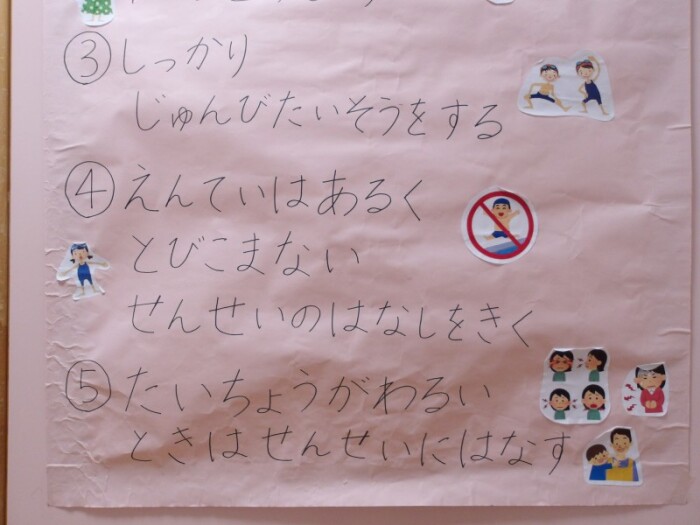 ③しっかり
じゅんびたいそうをする
④えんていはあるく
とびこまない
せんせいのはなしをきく
⑤たいちょうがわるい
ときはせんせいにはなす